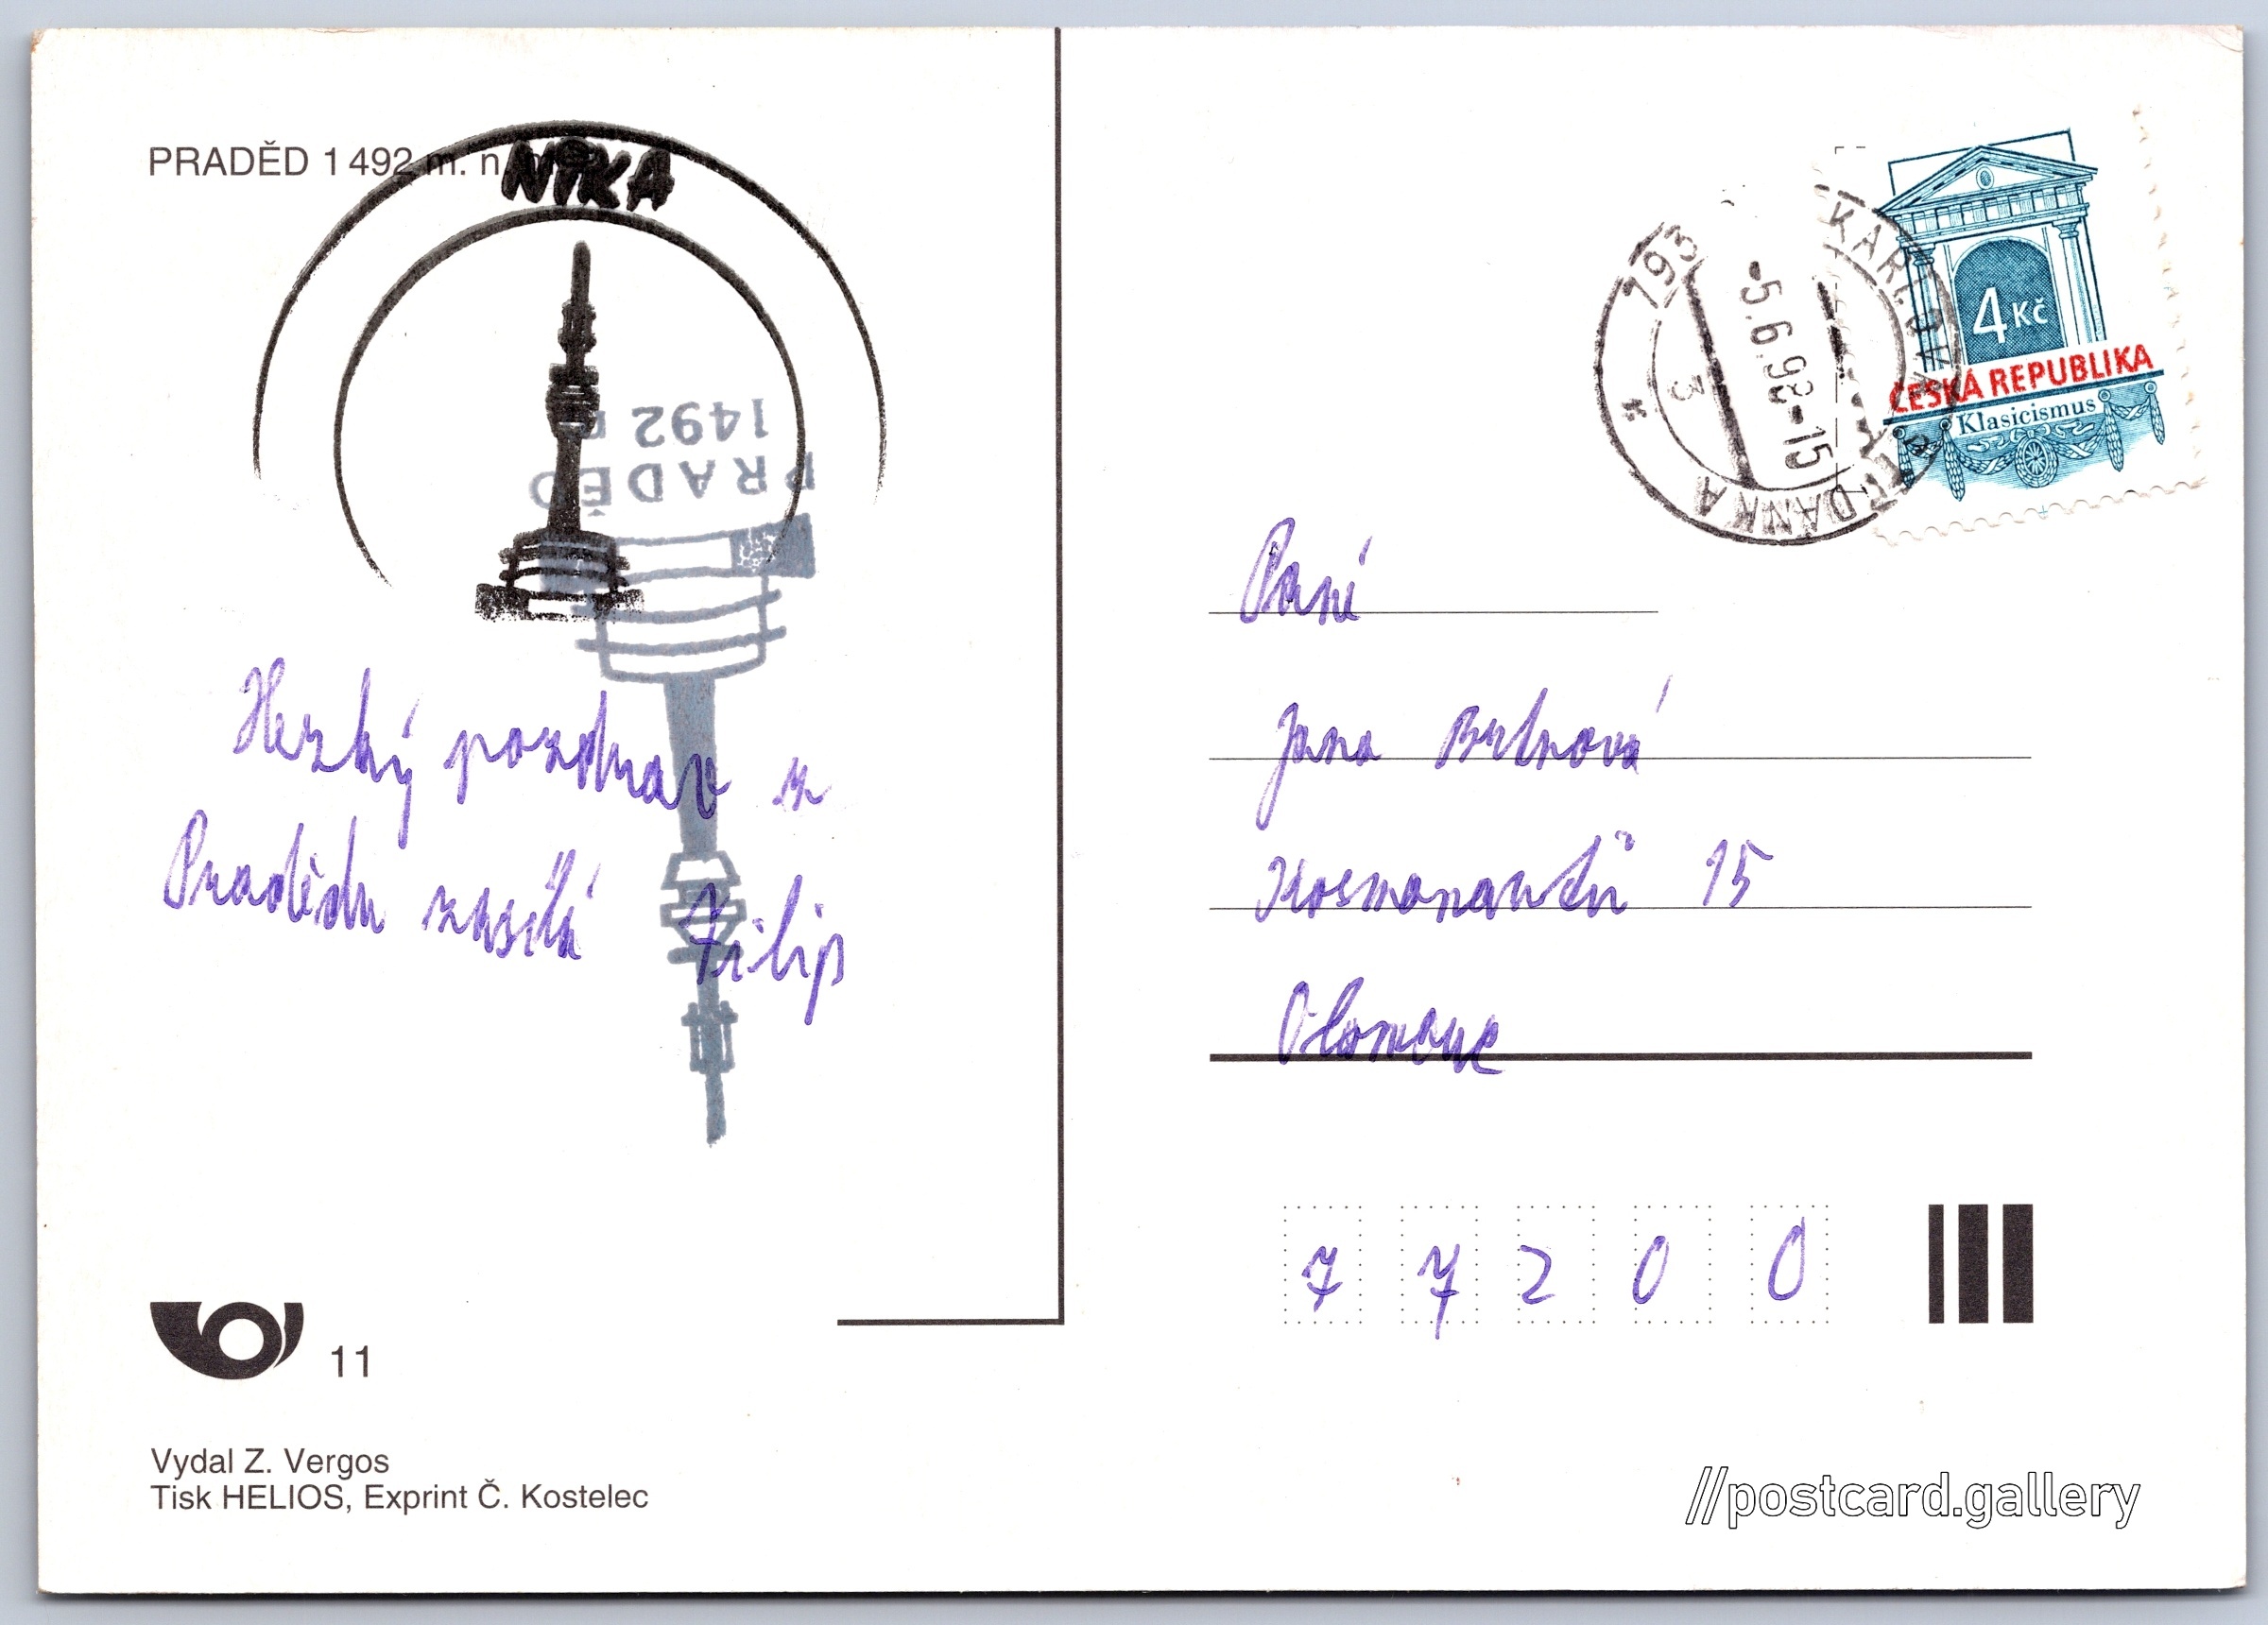 PRADĚD 1492 m. n.
NIKA
PRADĚD
1492
Hezký pozdrav z
Pradědu zasílá Filip
11
Vydal Z. Vergos
Tisk HELIOS, Exprint Č. Kostelec
793
KARL
-5.6.98-15
3
DANKA
4 Kč
ČESKÁ REPUBLIKA
Klasicismus
Paní
Jana
Kosmonautů 15
Olomouc
7 7 2 0 0
//postcard.gallery